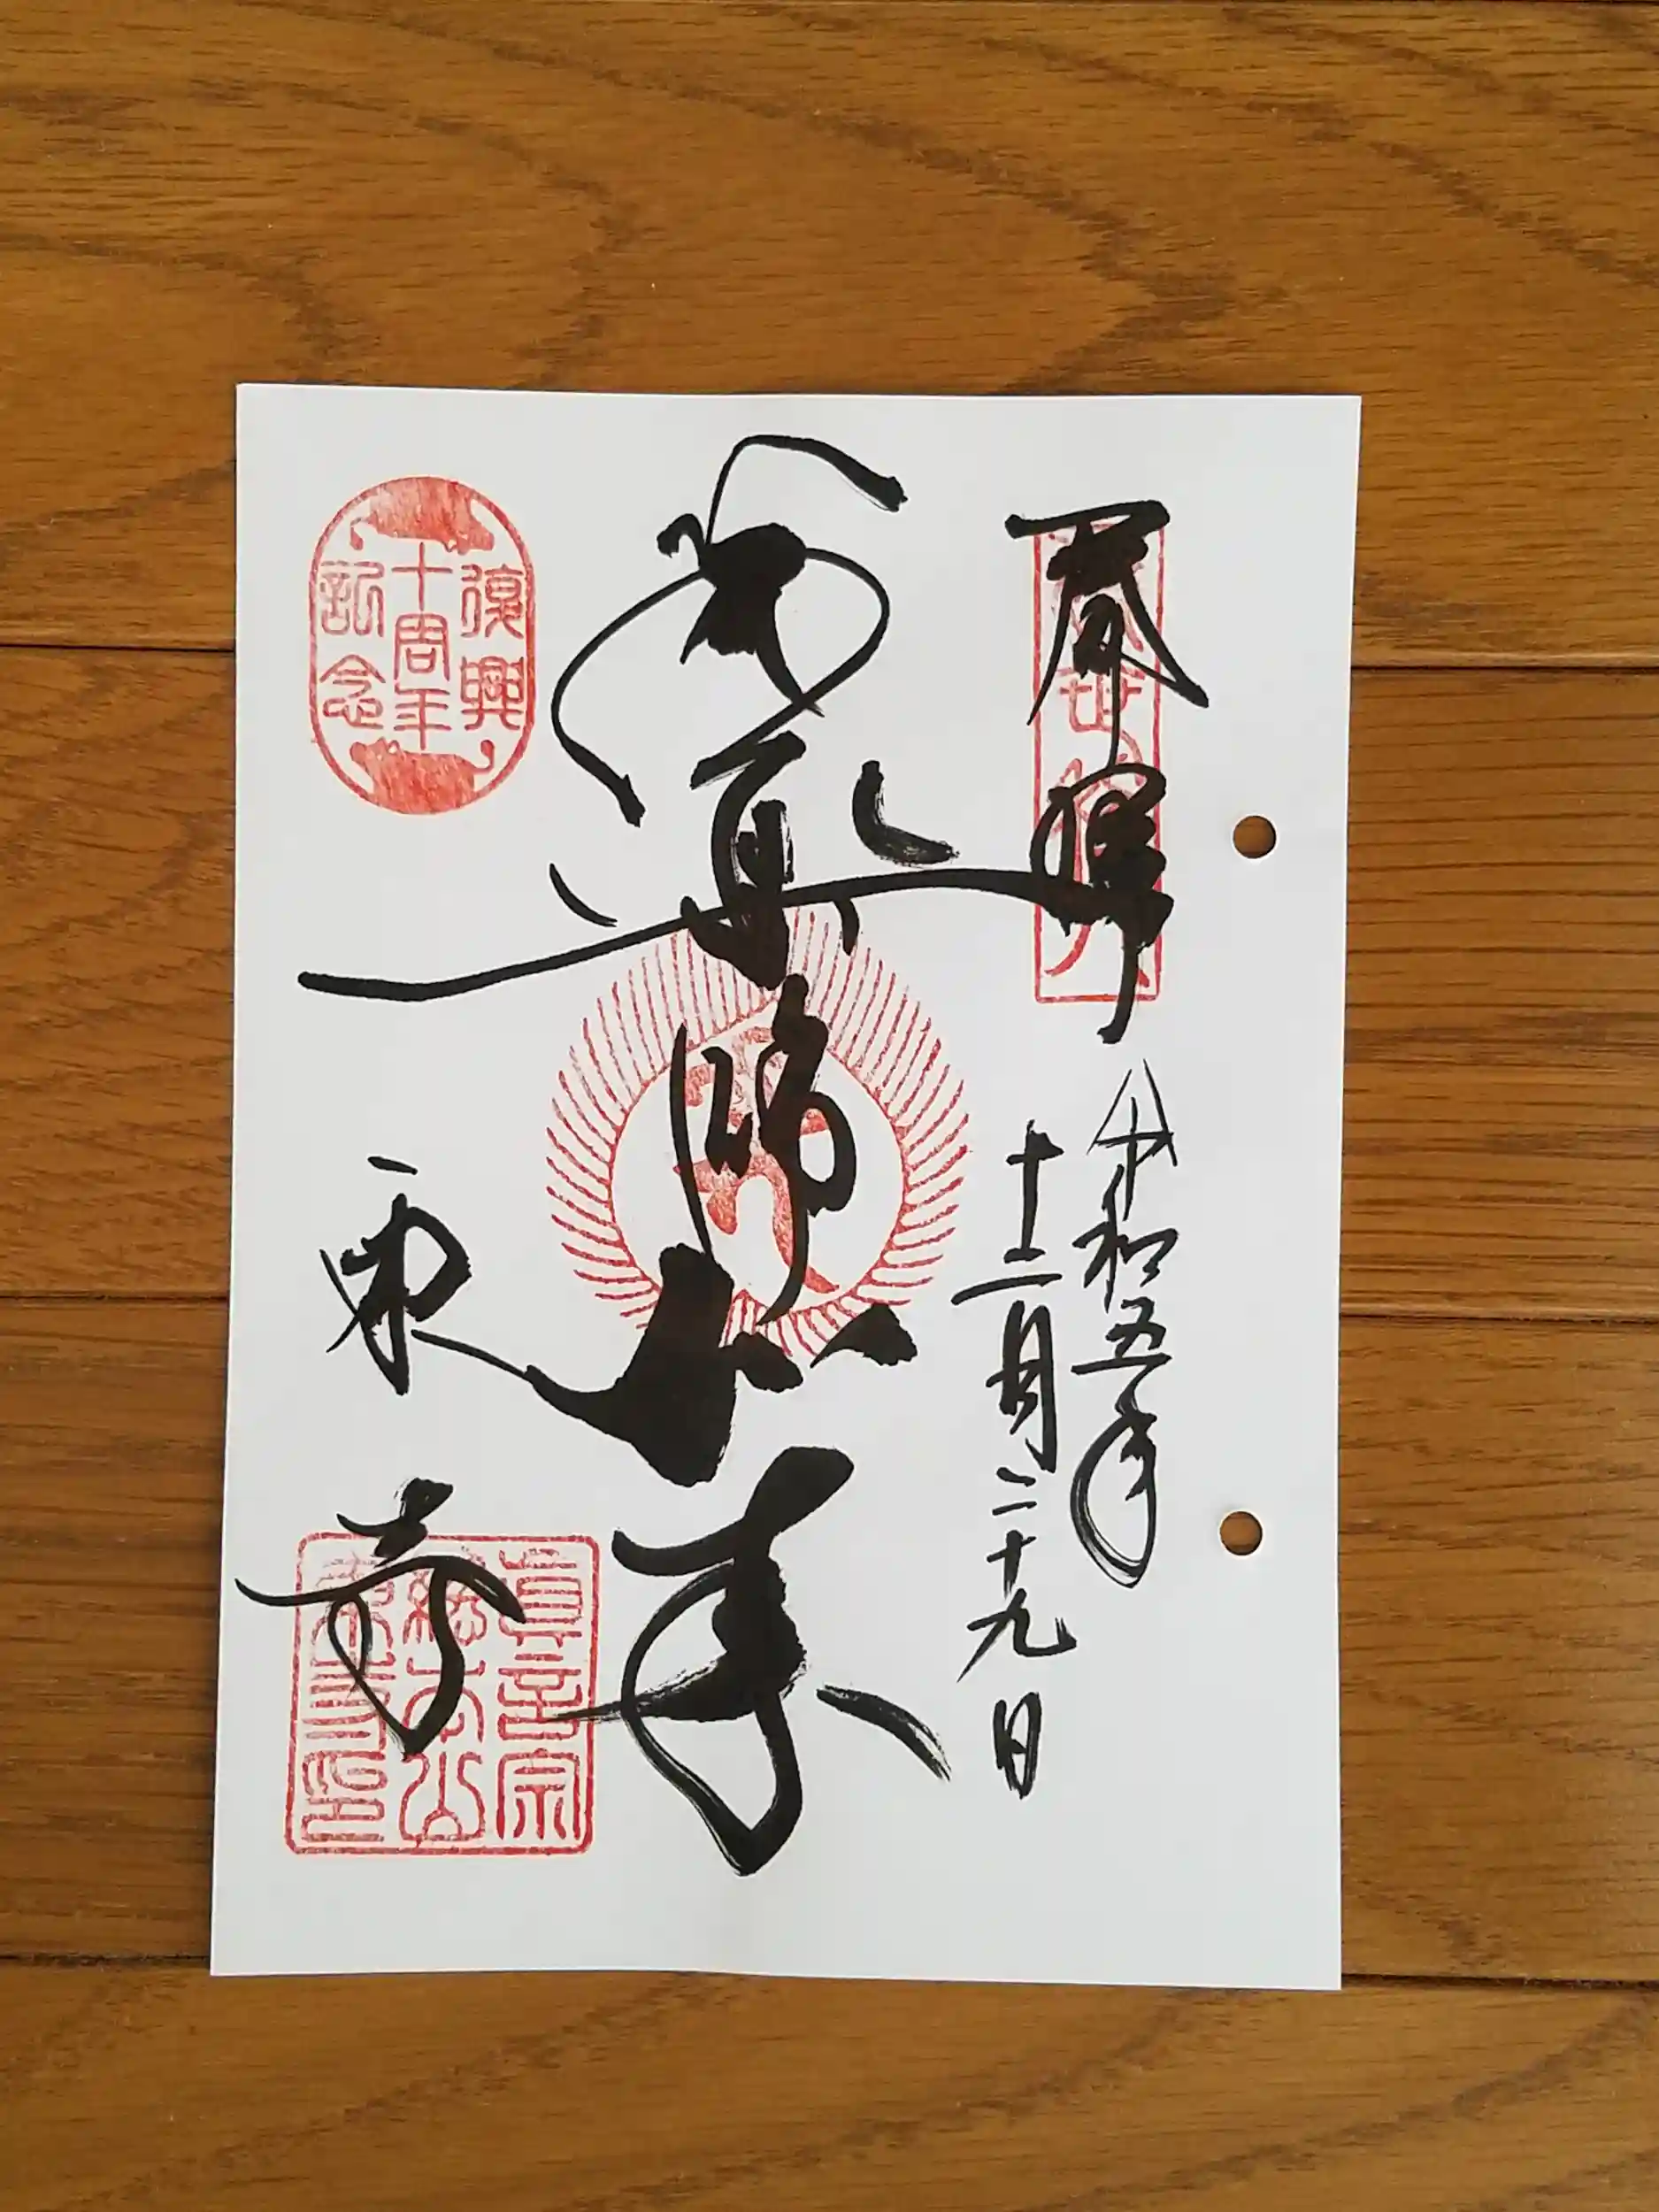 奉拝
令和五年
十二月二十九日
薬師如来
東寺
復興
十周年
記念
真言宗
総本山
東寺印